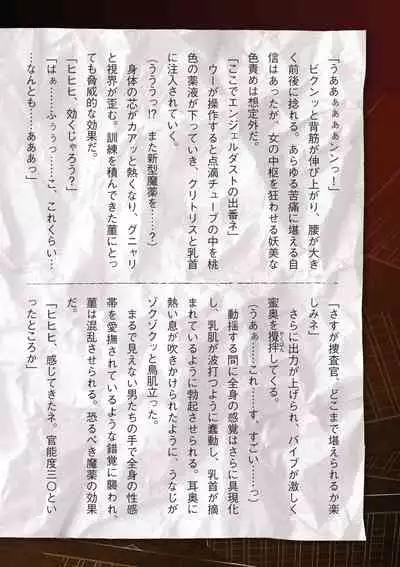 「うああぁぁぁぁンンっ！」
　ビクンッと背筋が伸び上がり、腰が大き
く前後に捻れる。あらゆる苦痛に堪える自
信はあったが、女の中枢を狂わせる妖美な
色責めは想定外だ。
「ここでエンジェルダストの出番ネ」
　ウーが操作すると点滴チューブの中を桃
色の薬液が下っていき、クリトリスと乳首
に注入されていく。
（ううっっ!?　また新型魔薬を……？）
　身体の芯がカアッと熱くなり、グニャリ
と視界が歪む。訓練を積んできた菫にとっ
ても脅威的な効果だ。
「ヒヒヒ、効くじゃろう？」
「はぁ……ふぅぅっ……こ、これくらい…
…なんとも……あああっ」
「さすが捜査官、どこまで堪えられるか楽
しみネ」
　さらに出力が上げられ、バイブが激しく
蜜奥を攪拌してくる。
（うあぁ……これ……す、すごい……っ）
　動揺する間に全身の感覚はさらに具現化
し、乳肌が波打つように蠢動し、乳首が摘
まれているように勃起させられる。耳奥に
熱い息が吹きかけられたように、うなじが
ゾクゾクッと鳥肌立った。
　まるで見えない男たちの手で全身の性感
帯を愛撫されているような錯覚に襲われ、
菫は混乱させられる。恐るべき魔薬の効果
だ。
「ヒヒヒ、感じてきたネ。官能度三〇とい
ったところか」